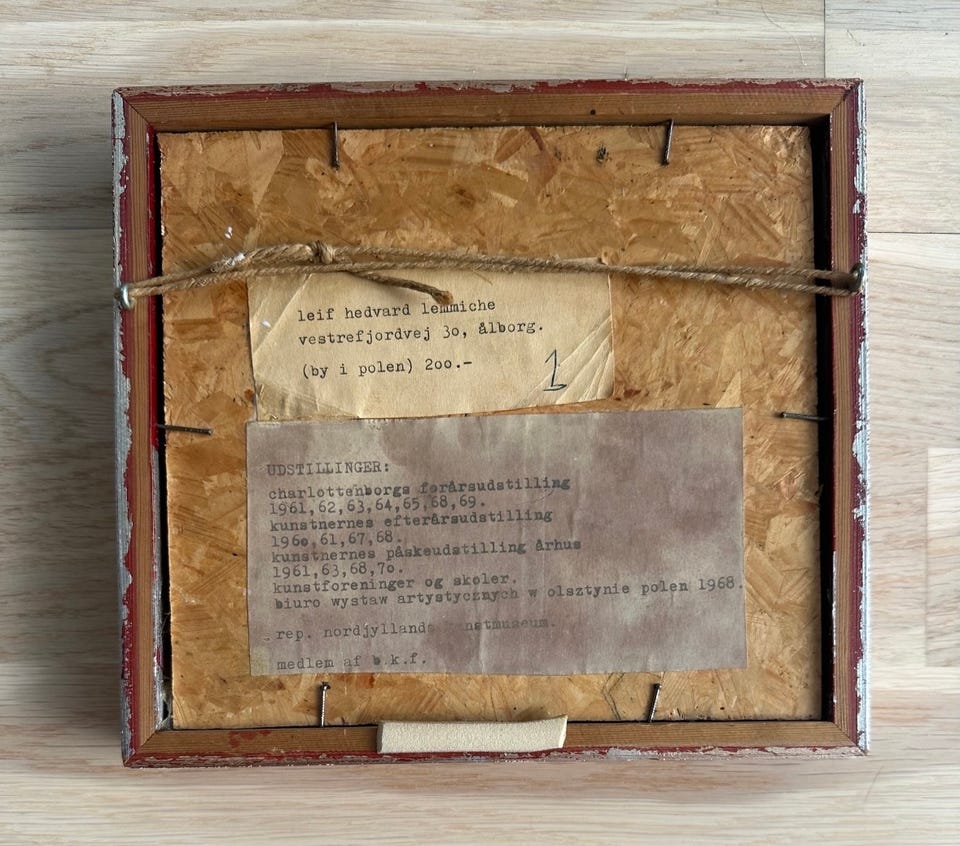 leif hedvard lemmiche
vestrefjordvej 3o, ålborg.
(by i polen) 2oo.-
1
UDSTILLINGER:
charlottenborgs forårsudstilling
1961,62,63,64,65,68,69.
kunstnernes efterårsudstilling
196o,61,67,68.
kunstnernes påskeudstilling århus
1961,63,68,7o.
kunstforeninger og skoler.
biuro wystaw artystycznych w olsztynie polen 1968.
rep. nordjyllands
medlem af b.k.f.